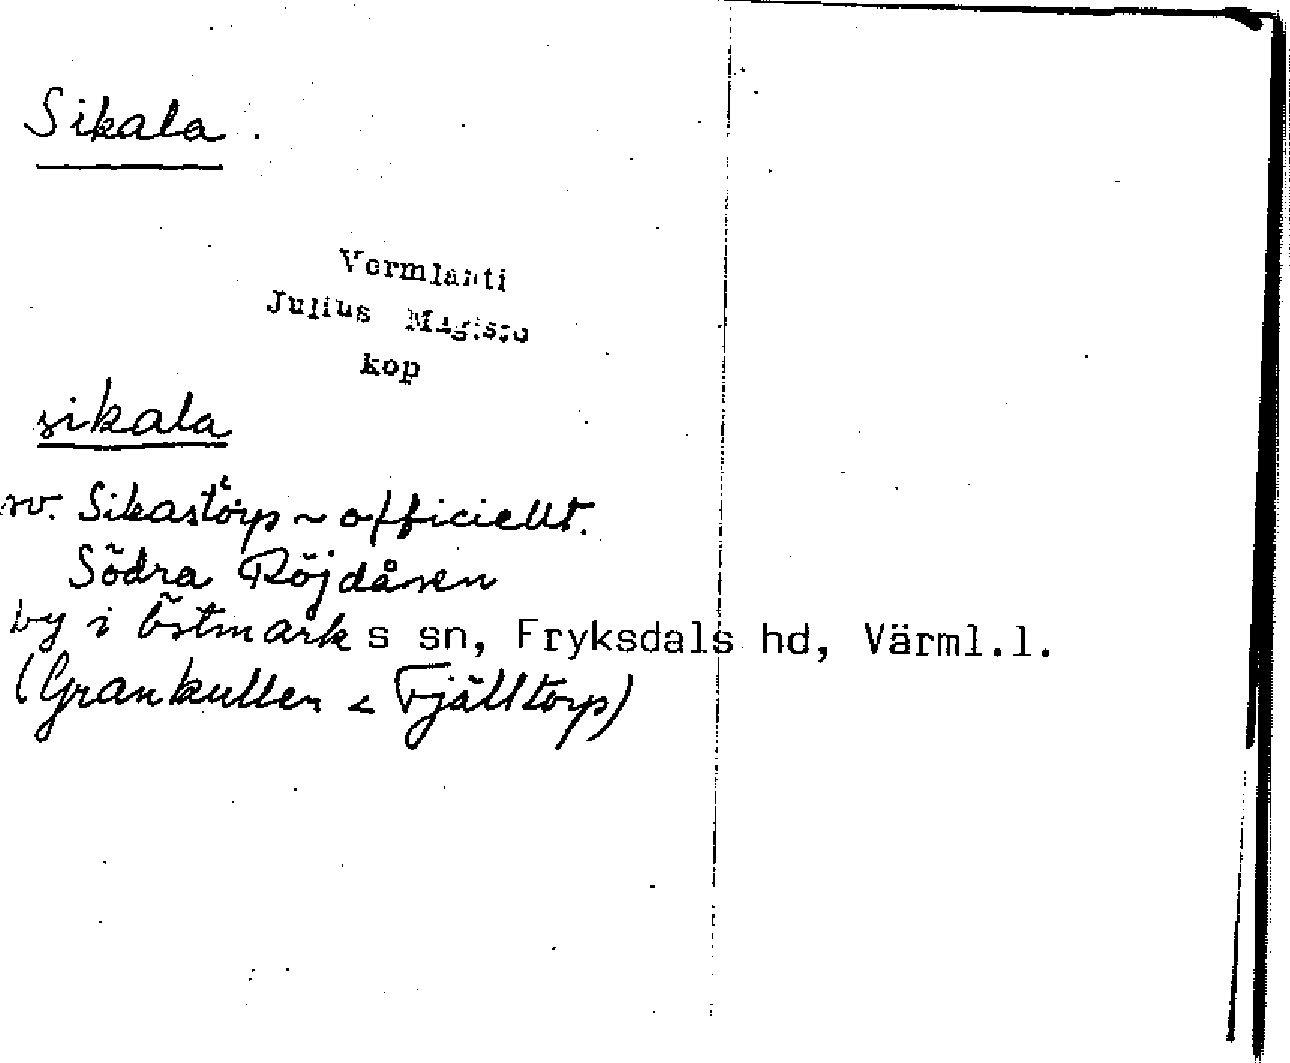 Sikala.
Vermlanti
Julius Mägiste
kop
sikala
rv. Sikastorp ~ officiellt.
Södra Röjdåsen
by i Östmarks sn, Fryksdals hd, Värml.l.
(Grankullen < Fjälltorp)